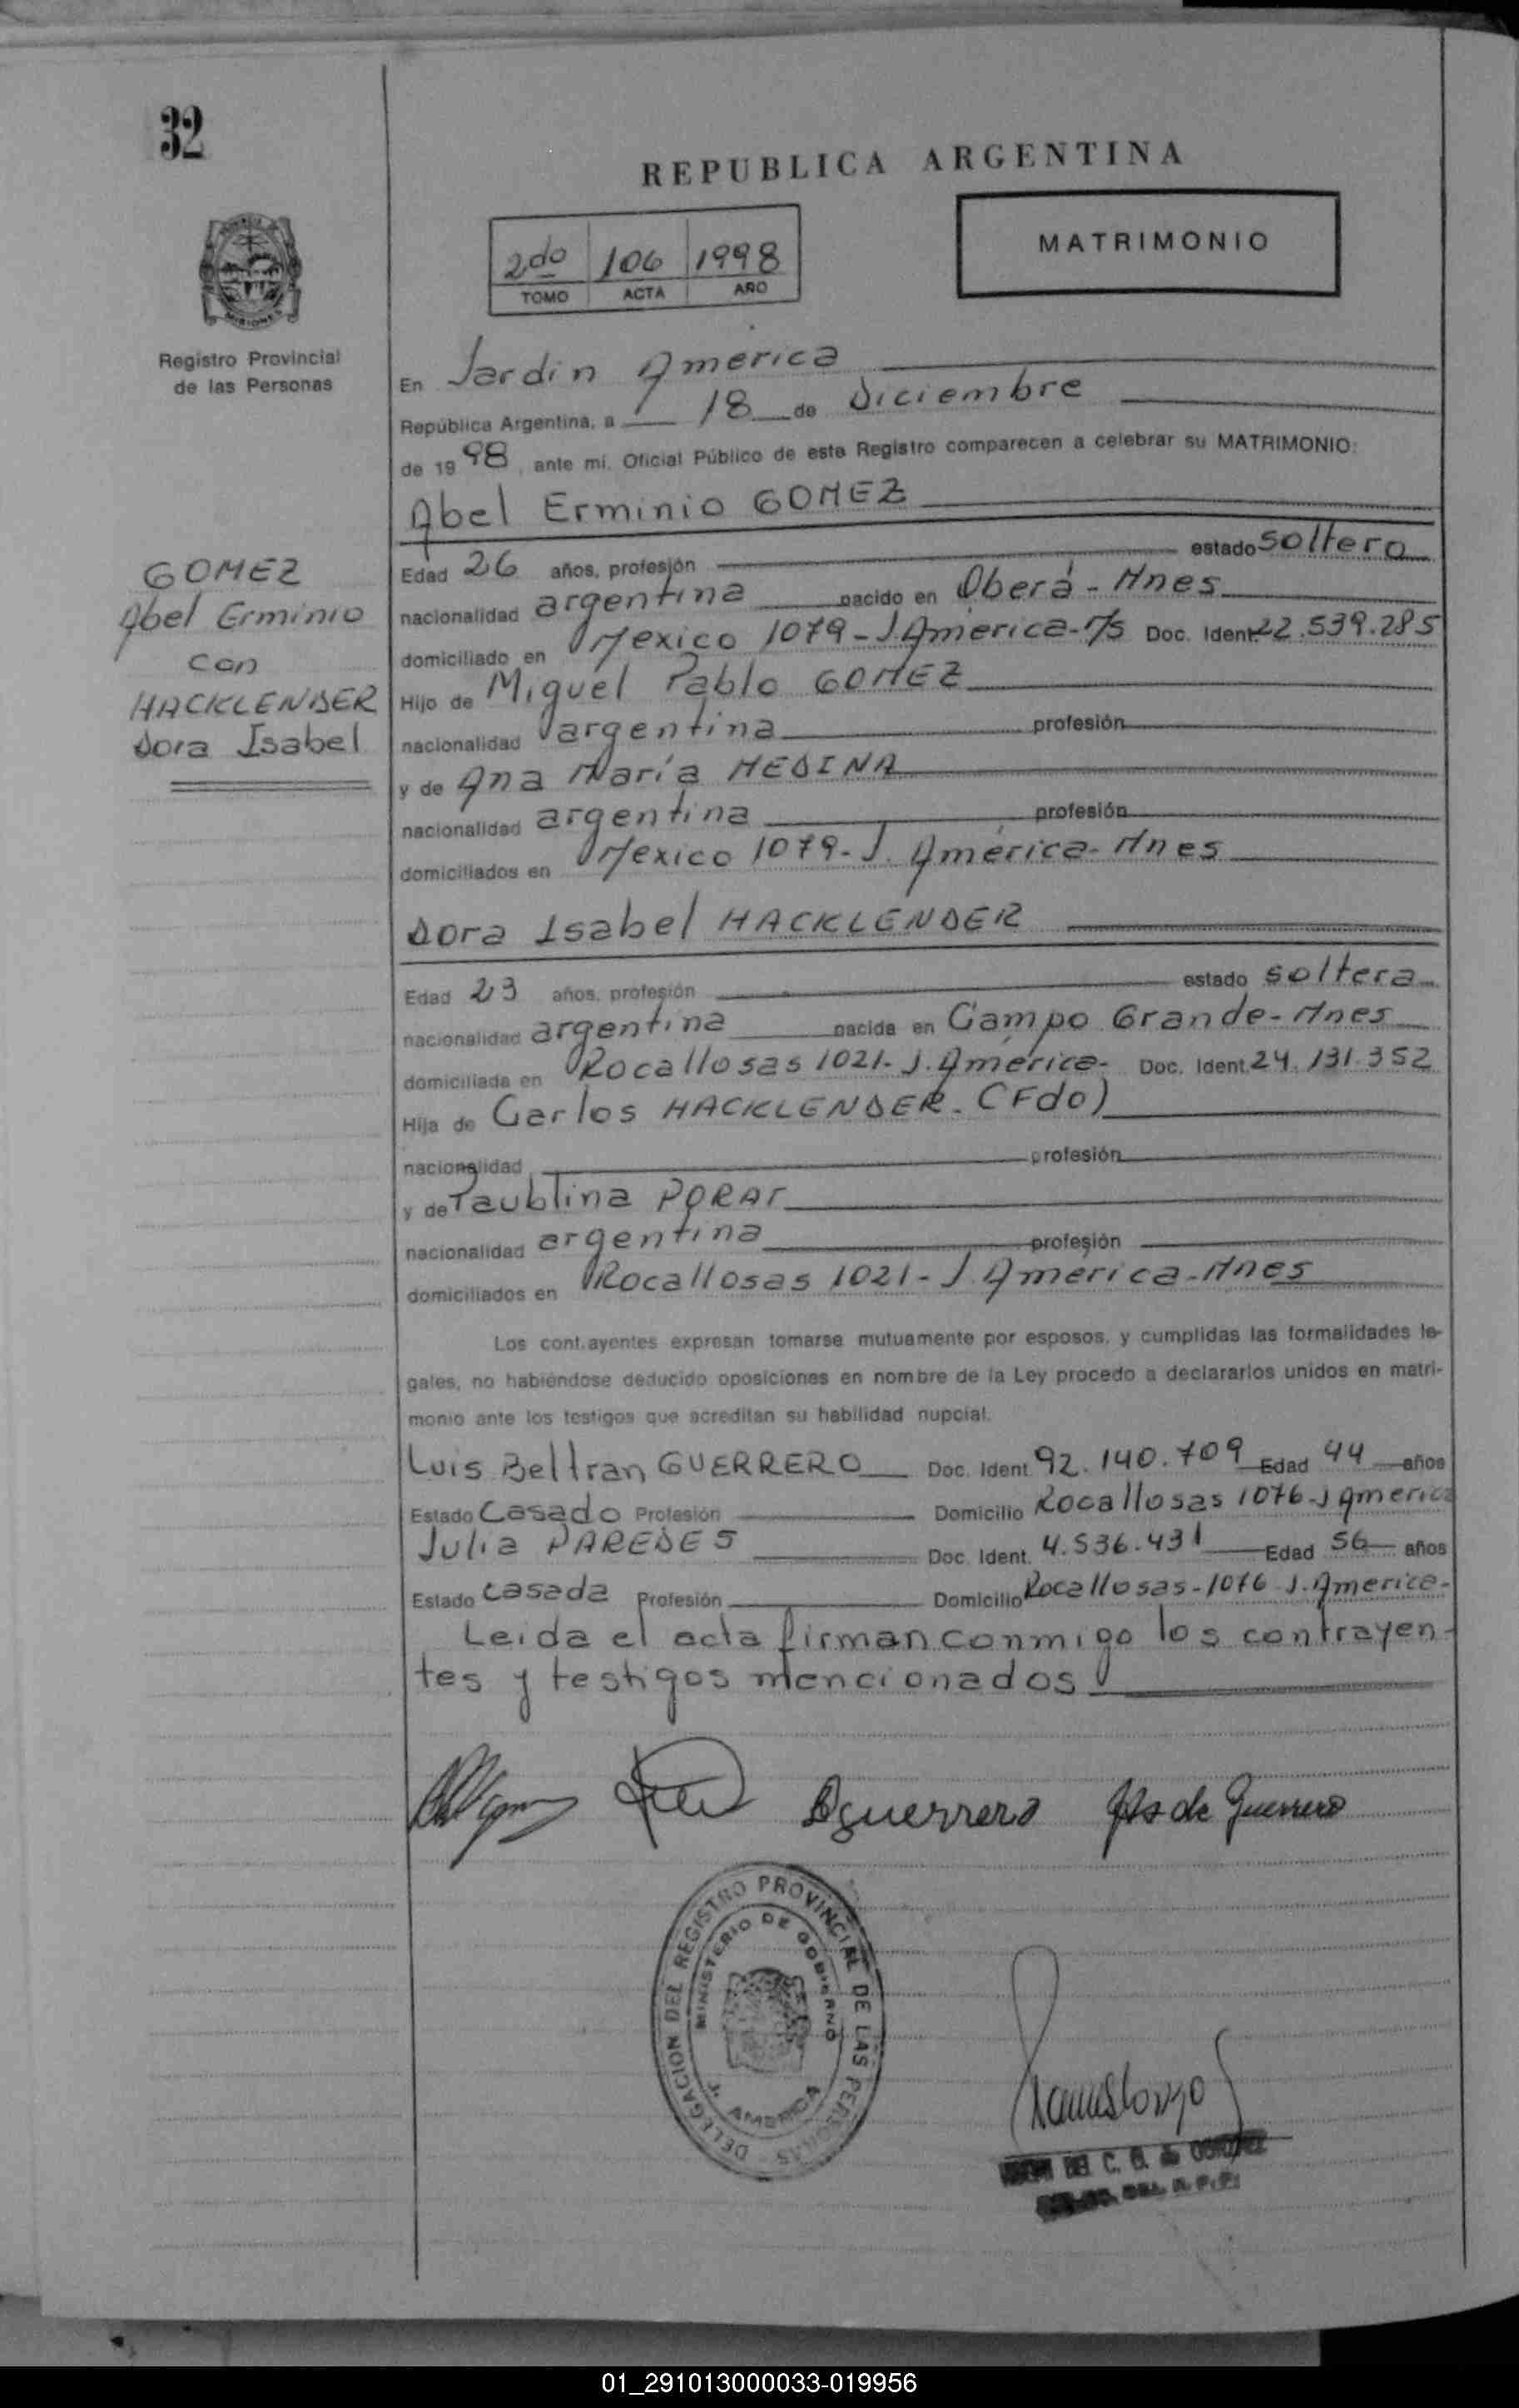 32
REPUBLICA ARGENTINA
MATRIMONIO
2do 106 1998
TOMO ACTA AÑO
MISIONES
Registro Provincial
de las Personas
En Jardin America
República Argentina, a 18 de Diciembre
de 1998, ante mí, Oficial Público de este Registro comparecen a celebrar su MATRIMONIO:
Abel Erminio GOMEZ
GOMEZ
Abel Erminio
con
HACKLENDER
Dora Isabel
Edad 26 años, profesión estado soltero
nacionalidad argentina nacido en Oberá - Mnes
domiciliado en Mexico 1079 - J. América - M/s Doc. Ident. 22.539.285
Hijo de Miguel Pablo GOMEZ
nacionalidad argentina profesión
y de Ana María MEDINA
nacionalidad argentina profesión
domiciliados en Mexico 1079 - J. América - Mnes
Dora Isabel HACKLENDER
Edad 23 años, profesión estado soltera
nacionalidad argentina nacida en Campo Grande - Mnes
domiciliada en Rocallosas 1021 - J. América - Doc. Ident. 24.131.352
Hija de Carlos HACKLENDER - (Fdo)
nacionalidad profesión
y de Paublina
nacionalidad argentina profesión
domiciliados en Rocallosas 1021 - J. America - Mnes
Los contrayentes expresan tomarse mutuamente por esposos, y cumplidas las formalidades le-
gales, no habiéndose deducido oposiciones en nombre de la Ley procedo a declararlos unidos en matri-
monio ante los testigos que acreditan su habilidad nupcial.
Luis Beltran GUERRERO Doc. Ident. 92.140.709 Edad 44 años
Estado Casado Profesión Domicilio Rocallosas 1076 - J America
Julia PAREDES Doc. Ident. 4.536.431 Edad 56 años
Estado casada Profesión Domicilio Rocallosas - 1076 J. America -
Leida el acta firman conmigo los contrayen-
tes y testigos mencionados
Guerrero de Guerrero
DELEGACION DEL REGISTRO PROVINCIAL DE LAS PERSONAS
MINISTERIO DE GOBIERNO
J. AMERICA
01_291013000033-019956